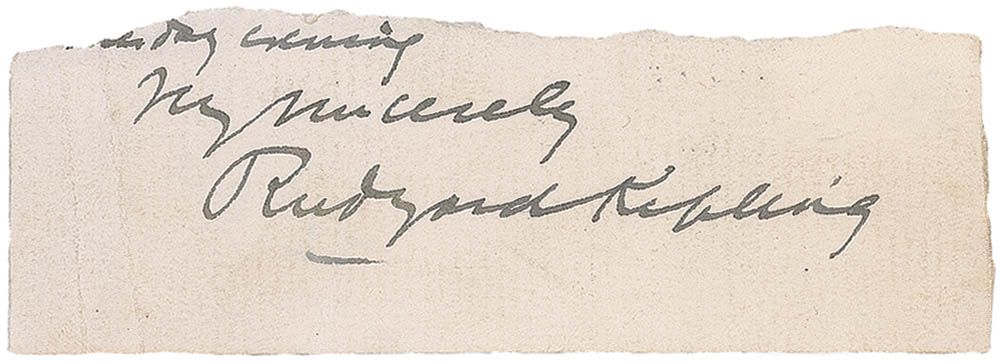 evening
Very sincerely
Rudyard Kipling